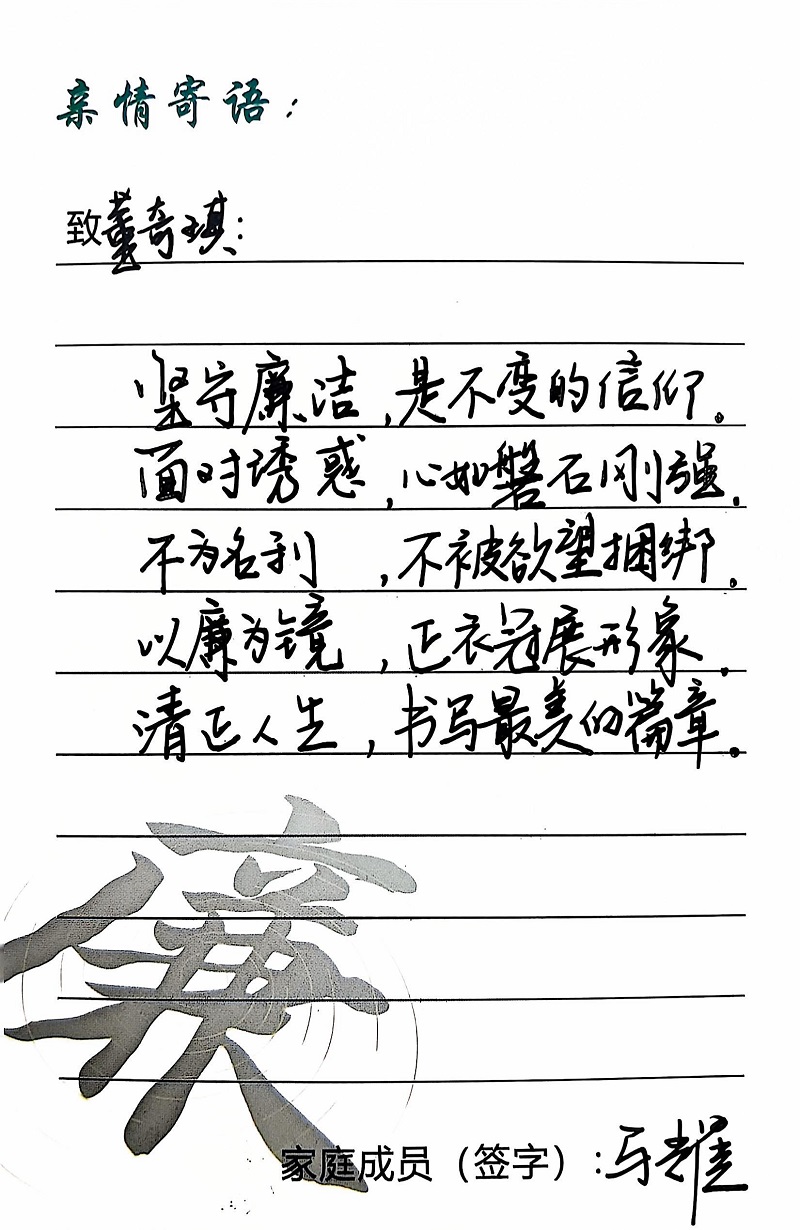 亲情寄语：
致董奇琪：
坚守廉洁，是不变的信仰。
面对诱惑，心如磐石刚强。
不为名利，不被欲望捆绑。
以廉为镜，正衣冠展形象。
清正人生，书写最美的篇章。
廉
家庭成员（签字）：马耀